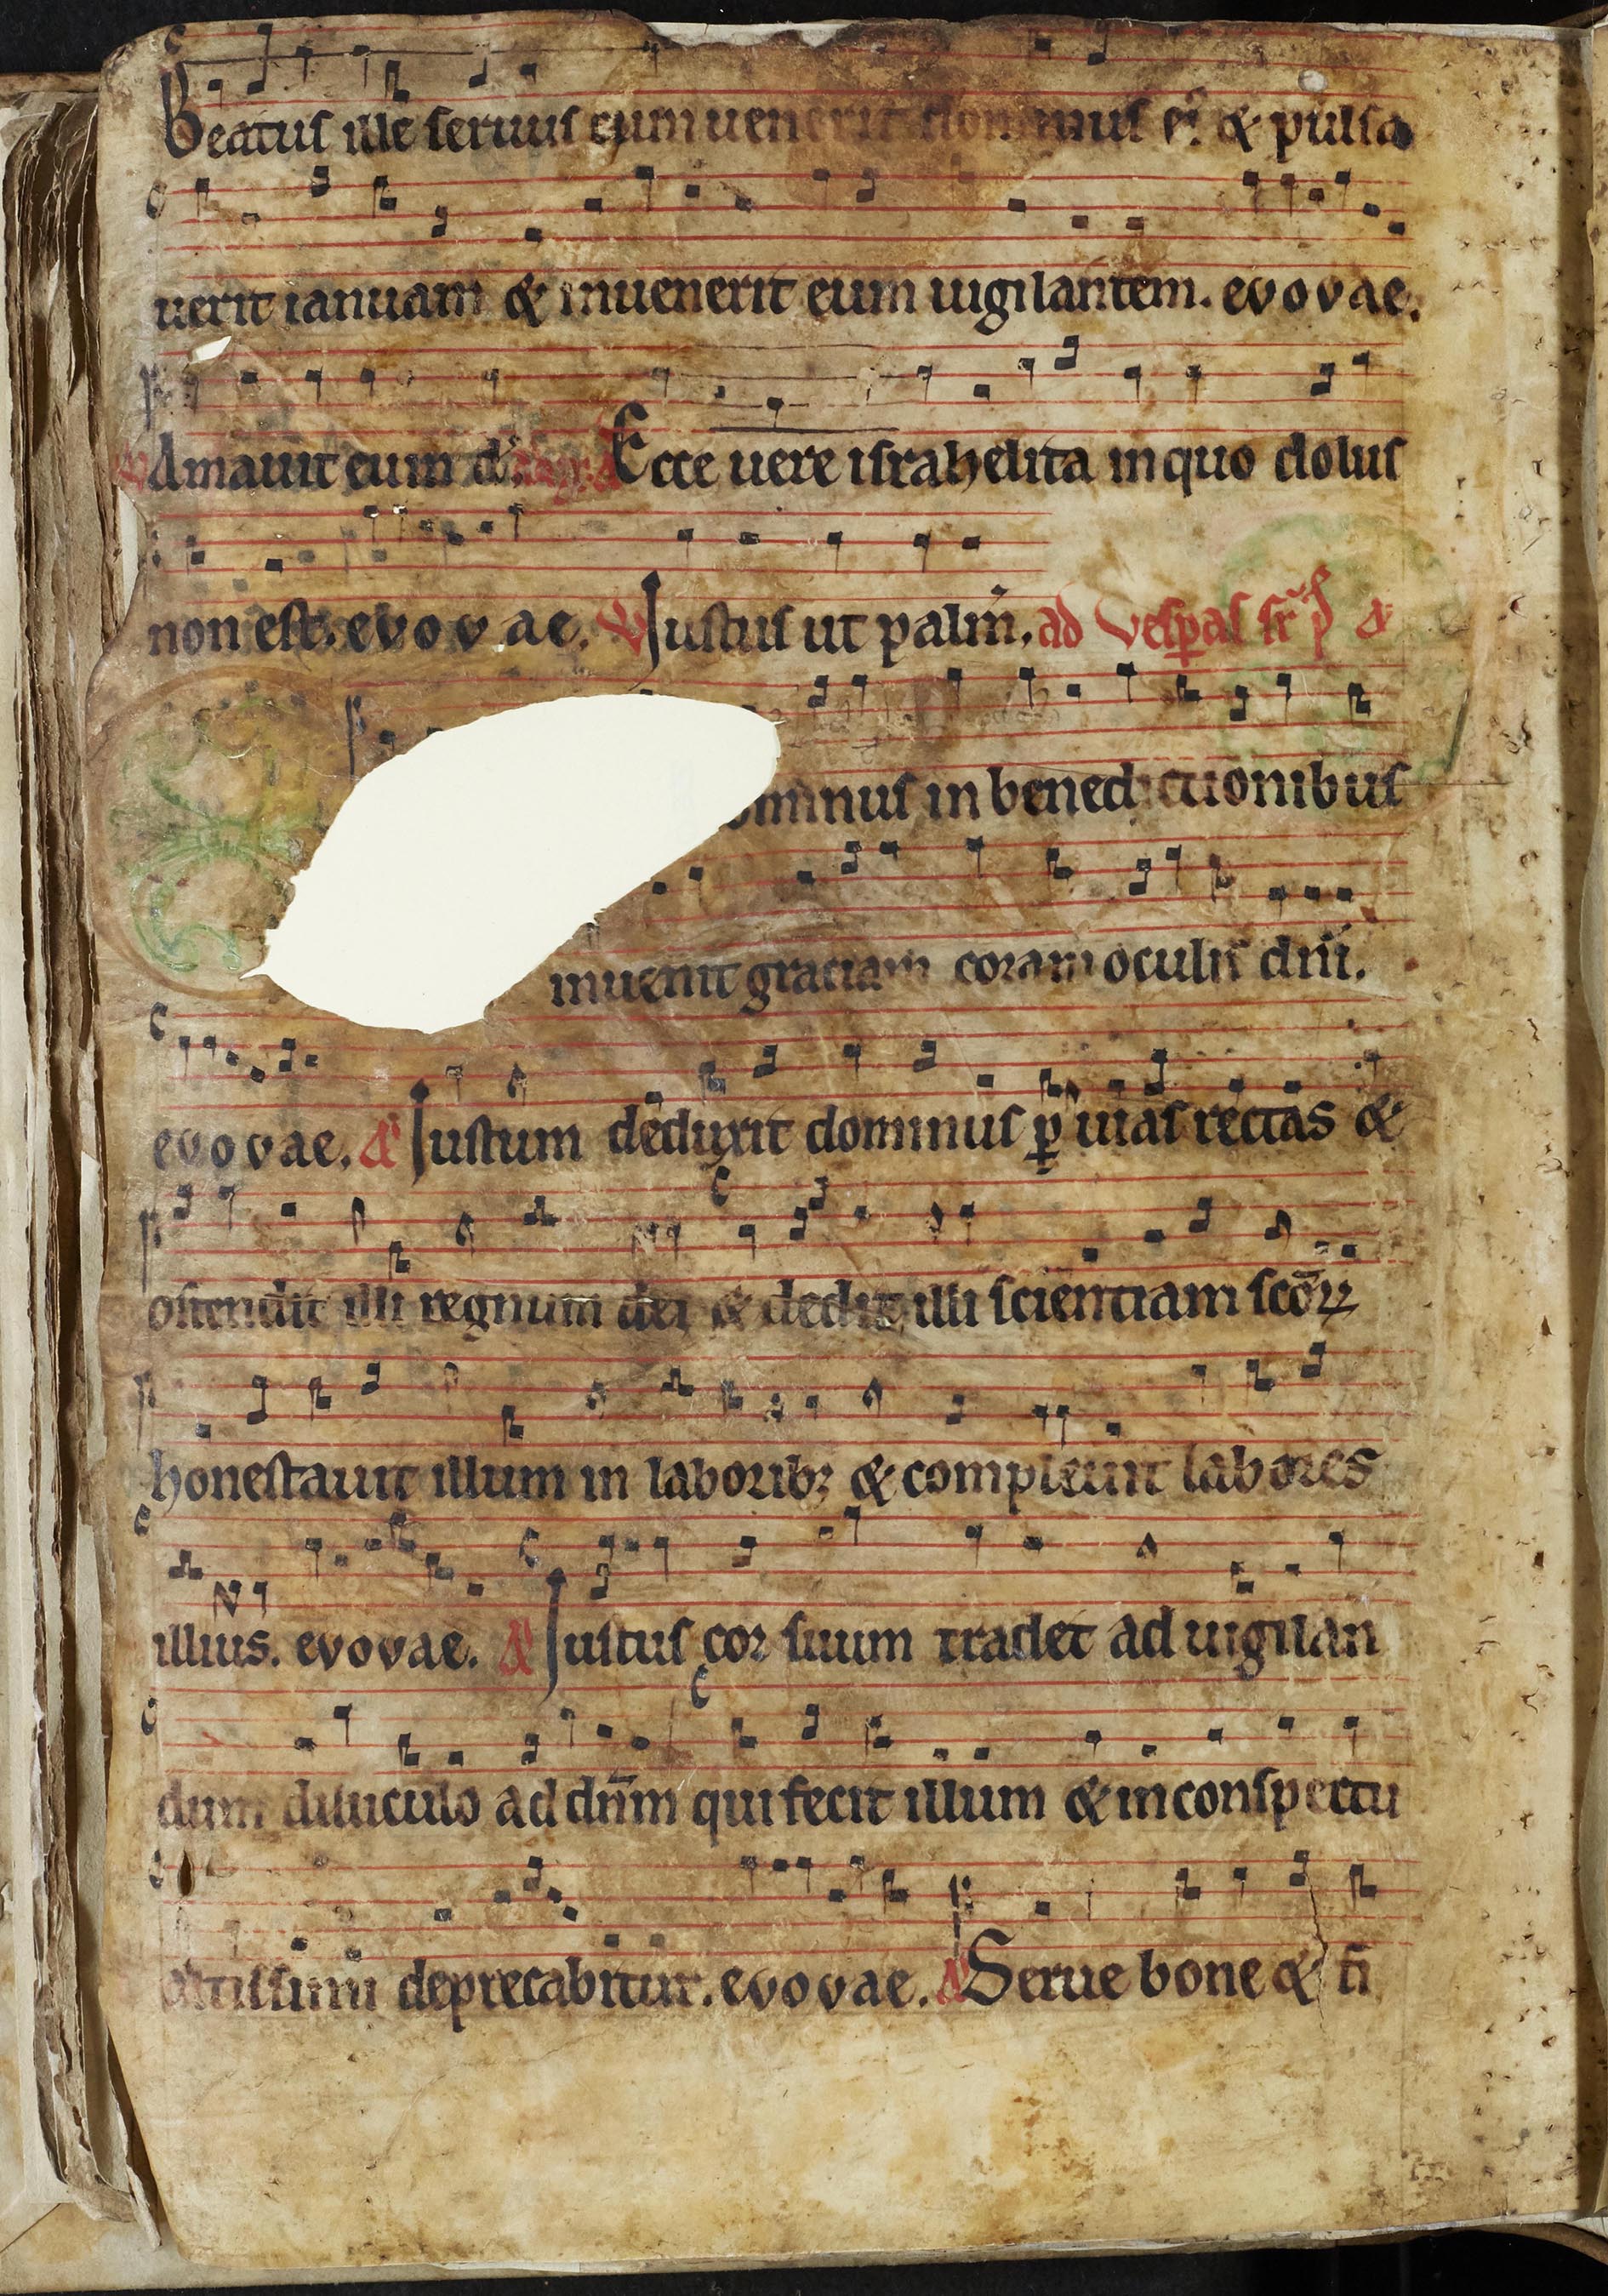 Beatus ille seruus cum uenerit dominus eı᷒ & pulsa
uerit ianuam & inuenerit eum uigilantem. evovae.
Amauit eum d Ecce uere israhelita in quo dolus
non est. evovae. V Iustus ut palm̄. ad vesꝑas &
ominus in benedictionibus
inuenit graciam coram oculis dn̄i.
evovae. A Iustum deduxit dominus ꝑ uias rectas &
ostendit illi regnum dei & dedit illi scientiam scōꝝ
honestauit illum in laborib; & compleuit labores
illius. evovae. A Iustus cor suum tradet ad uigilan
dum diluculo ad dn̄m qui fecit illum & in conspectu
altissimi deprecabitur. evovae. A Serue bone & fi